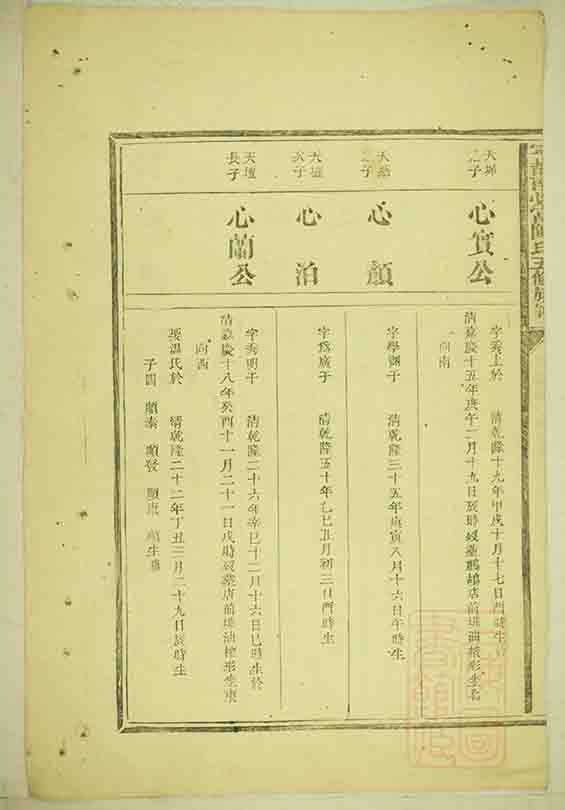 心寅公
字秀上於 清乾隆十九年甲戌十月十七日酉時生
清嘉慶十五年庚午二月十九日辰時歿葬鵝鴣店前堪油榨形坐北
向南
心顏
字學淵于 清乾隆三十五年庚寅八月十六日午時生
次子
心泊
字 廣于 清乾隆五十年乙巳正月初三日酉時生
天壇
長子
心蘭公
字秀明于 清乾隆二十六年辛巳十二月十六日巳時生於
清嘉慶十八年癸酉十一月二十一日戌時歿葬店前堪油榨形坐東
向西
娶溫氏於 清乾隆二十二年丁丑三月二十九日辰時生
子四 順泰 順發 順庚 順生